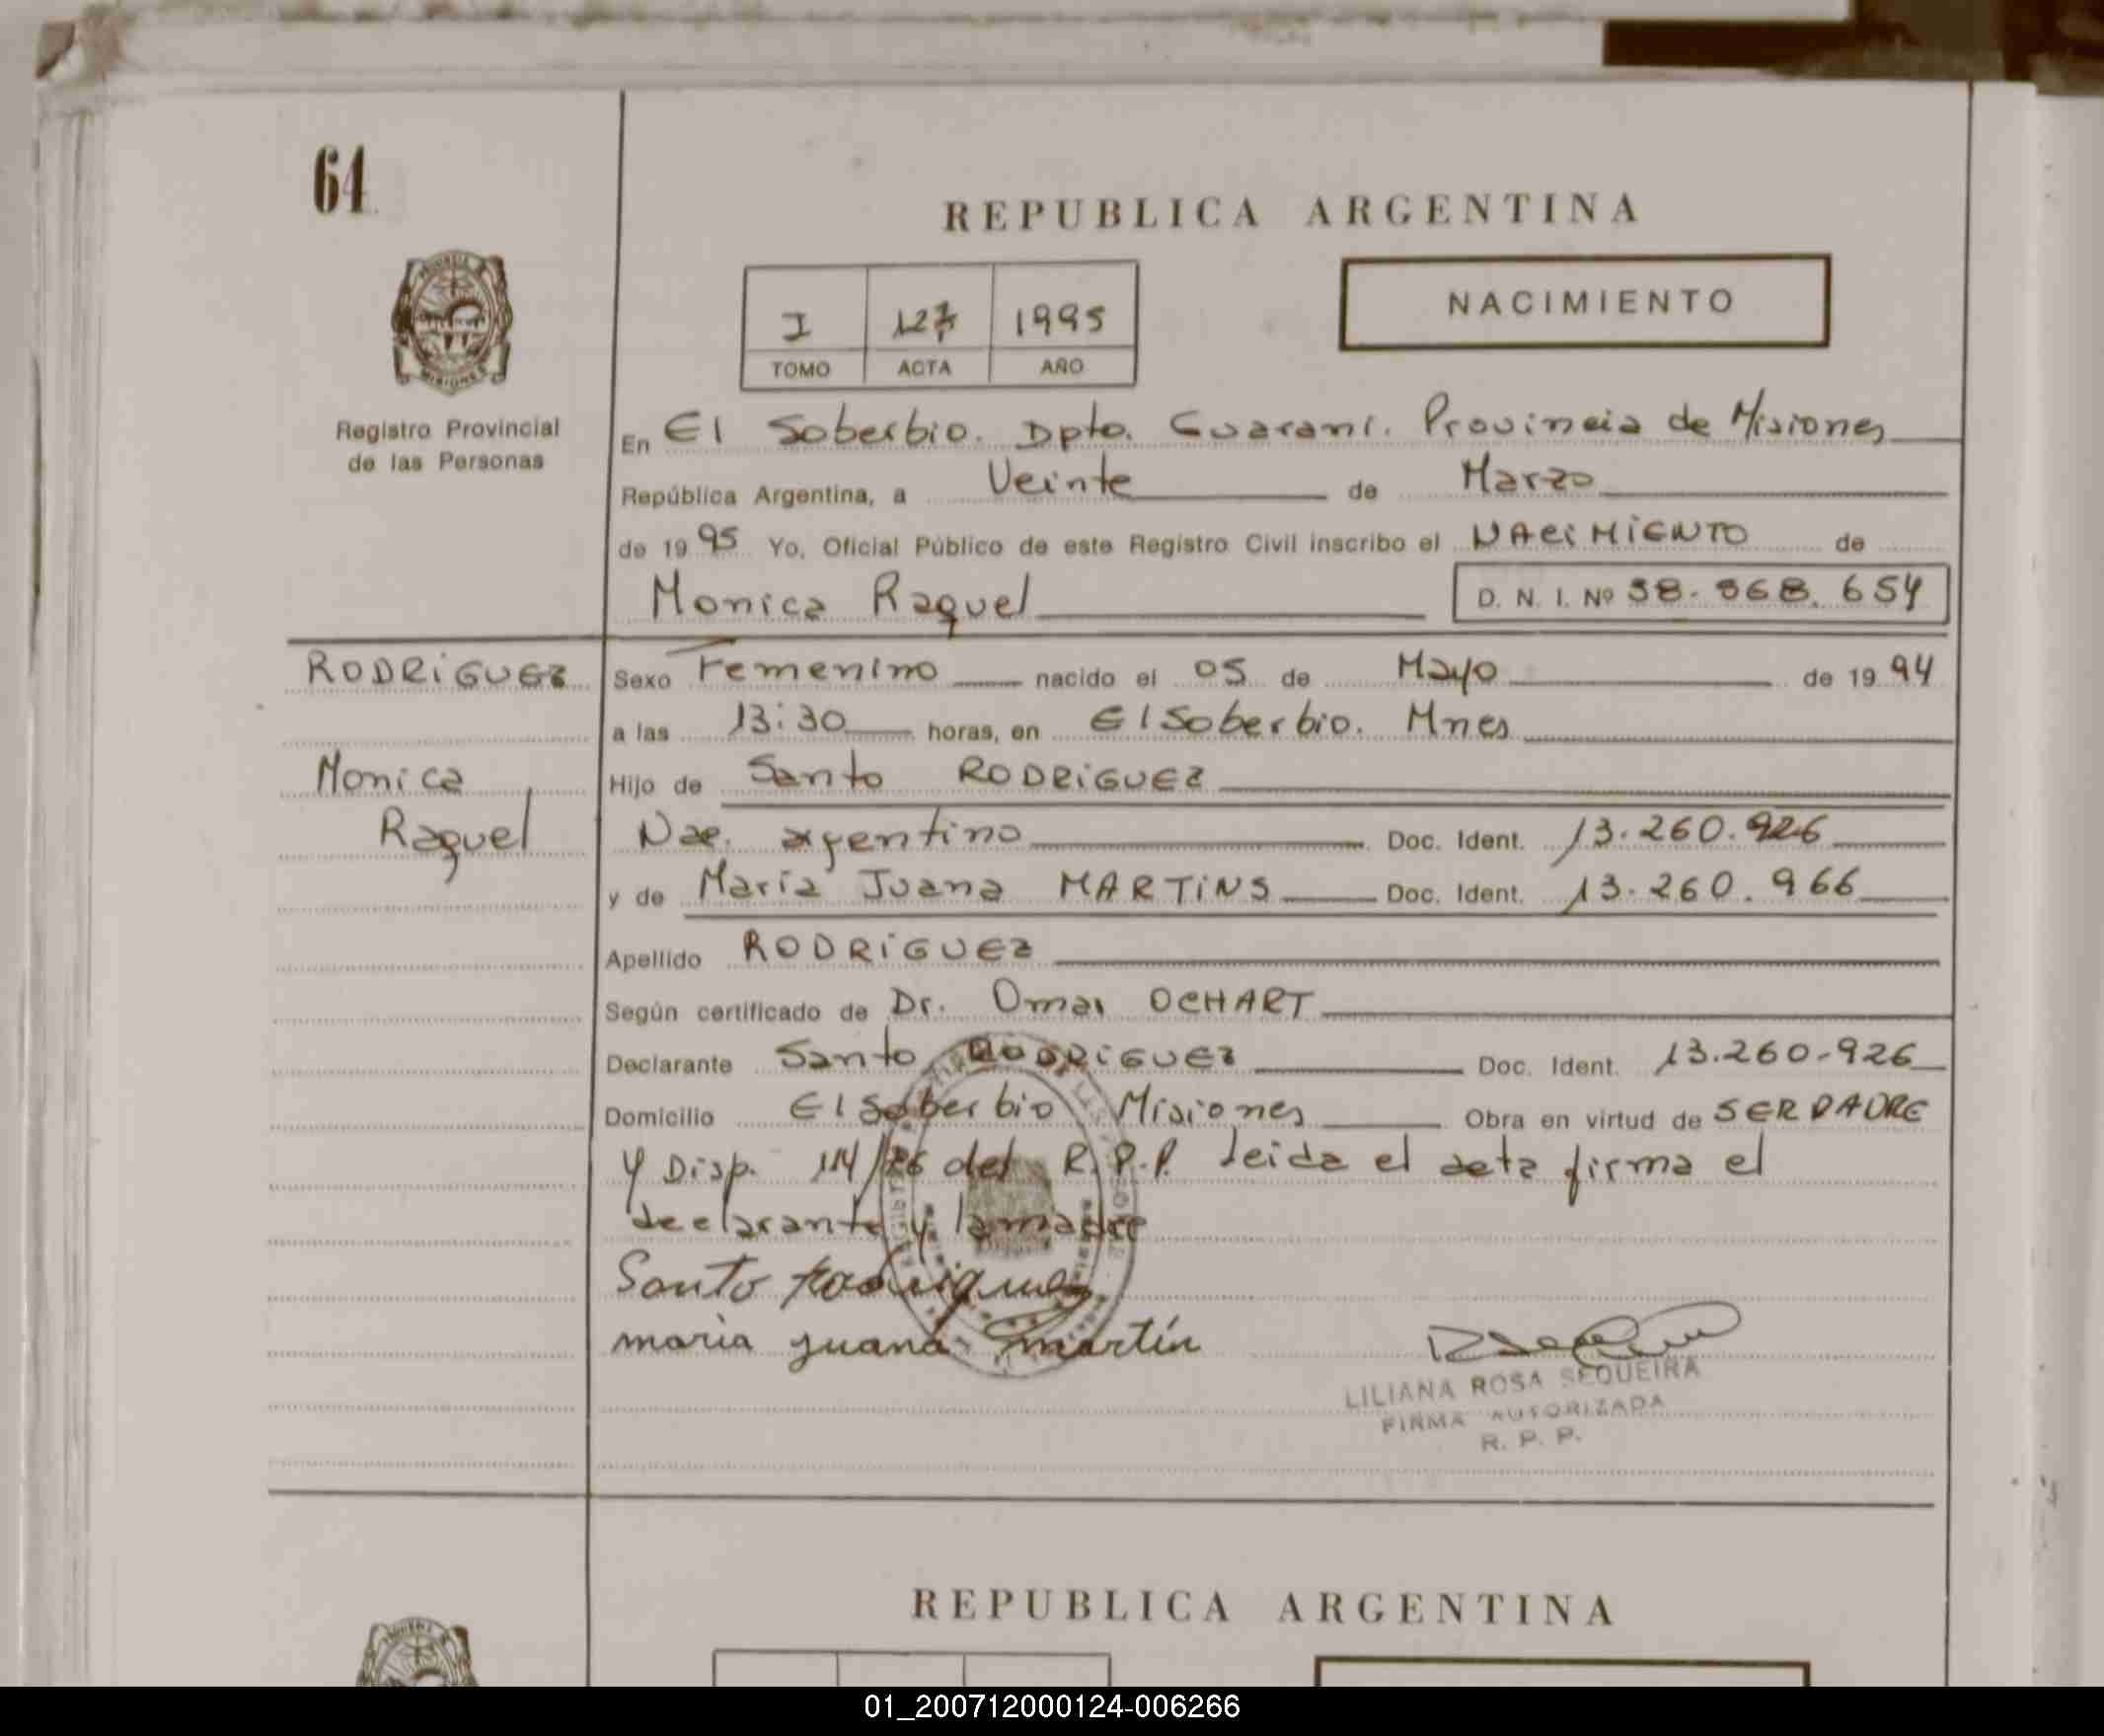 64
REPUBLICA ARGENTINA
NACIMIENTO
I 127 1995
TOMO ACTA AÑO
Registro Provincial
de las Personas
En El Soberbio. Dpto. Guarani. Provincia de Misiones
República Argentina, a Veinte de Marzo
de 1995 Yo, Oficial Público de este Registro Civil inscribo el NACIMIENTO de
Monica Raquel D. N. I. Nº 38.868.654
RODRIGUEZ
Monica
Raquel
Sexo Femenino nacido el 05 de Mayo de 1994
a las 13:30 horas, en El Soberbio. Mnes
Hijo de Santo RODRIGUEZ
Nac. argentino Doc. Ident. 13.260.926
y de María Juana MARTINS Doc. Ident. 13.260.966
Apellido RODRIGUEZ
Según certificado de Dr. Omar OCHART
Declarante Santo RODRIGUEZ Doc. Ident. 13.260.926
Domicilio El Soberbio Misiones Obra en virtud de SER PADRE
Y Disp. 114/86 del R.P.P. Leida el acta firma el
declarante y la madre
Santo Rodriguez
maria juana martín
LILIANA ROSA SEQUEIRA
FIRMA AUTORIZADA
R. P. P.
REPUBLICA ARGENTINA
01_200712000124-006266